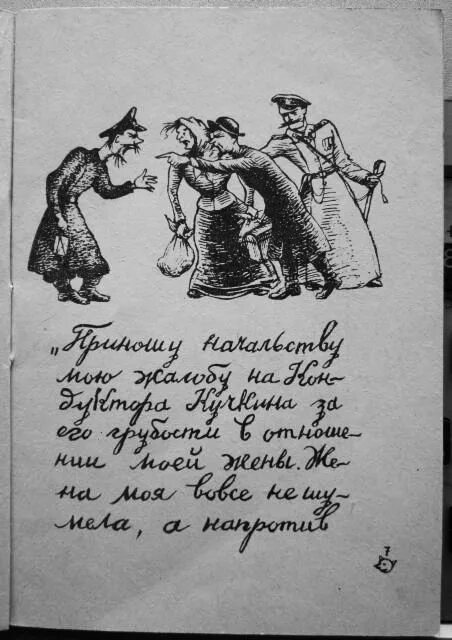 „Приношу начальству
мою жалобу на Кон-
дуктора Кучкина за
его грубости в отноше-
нии моей жены. Же-
на моя вовсе не шу-
мела, а напротив
7